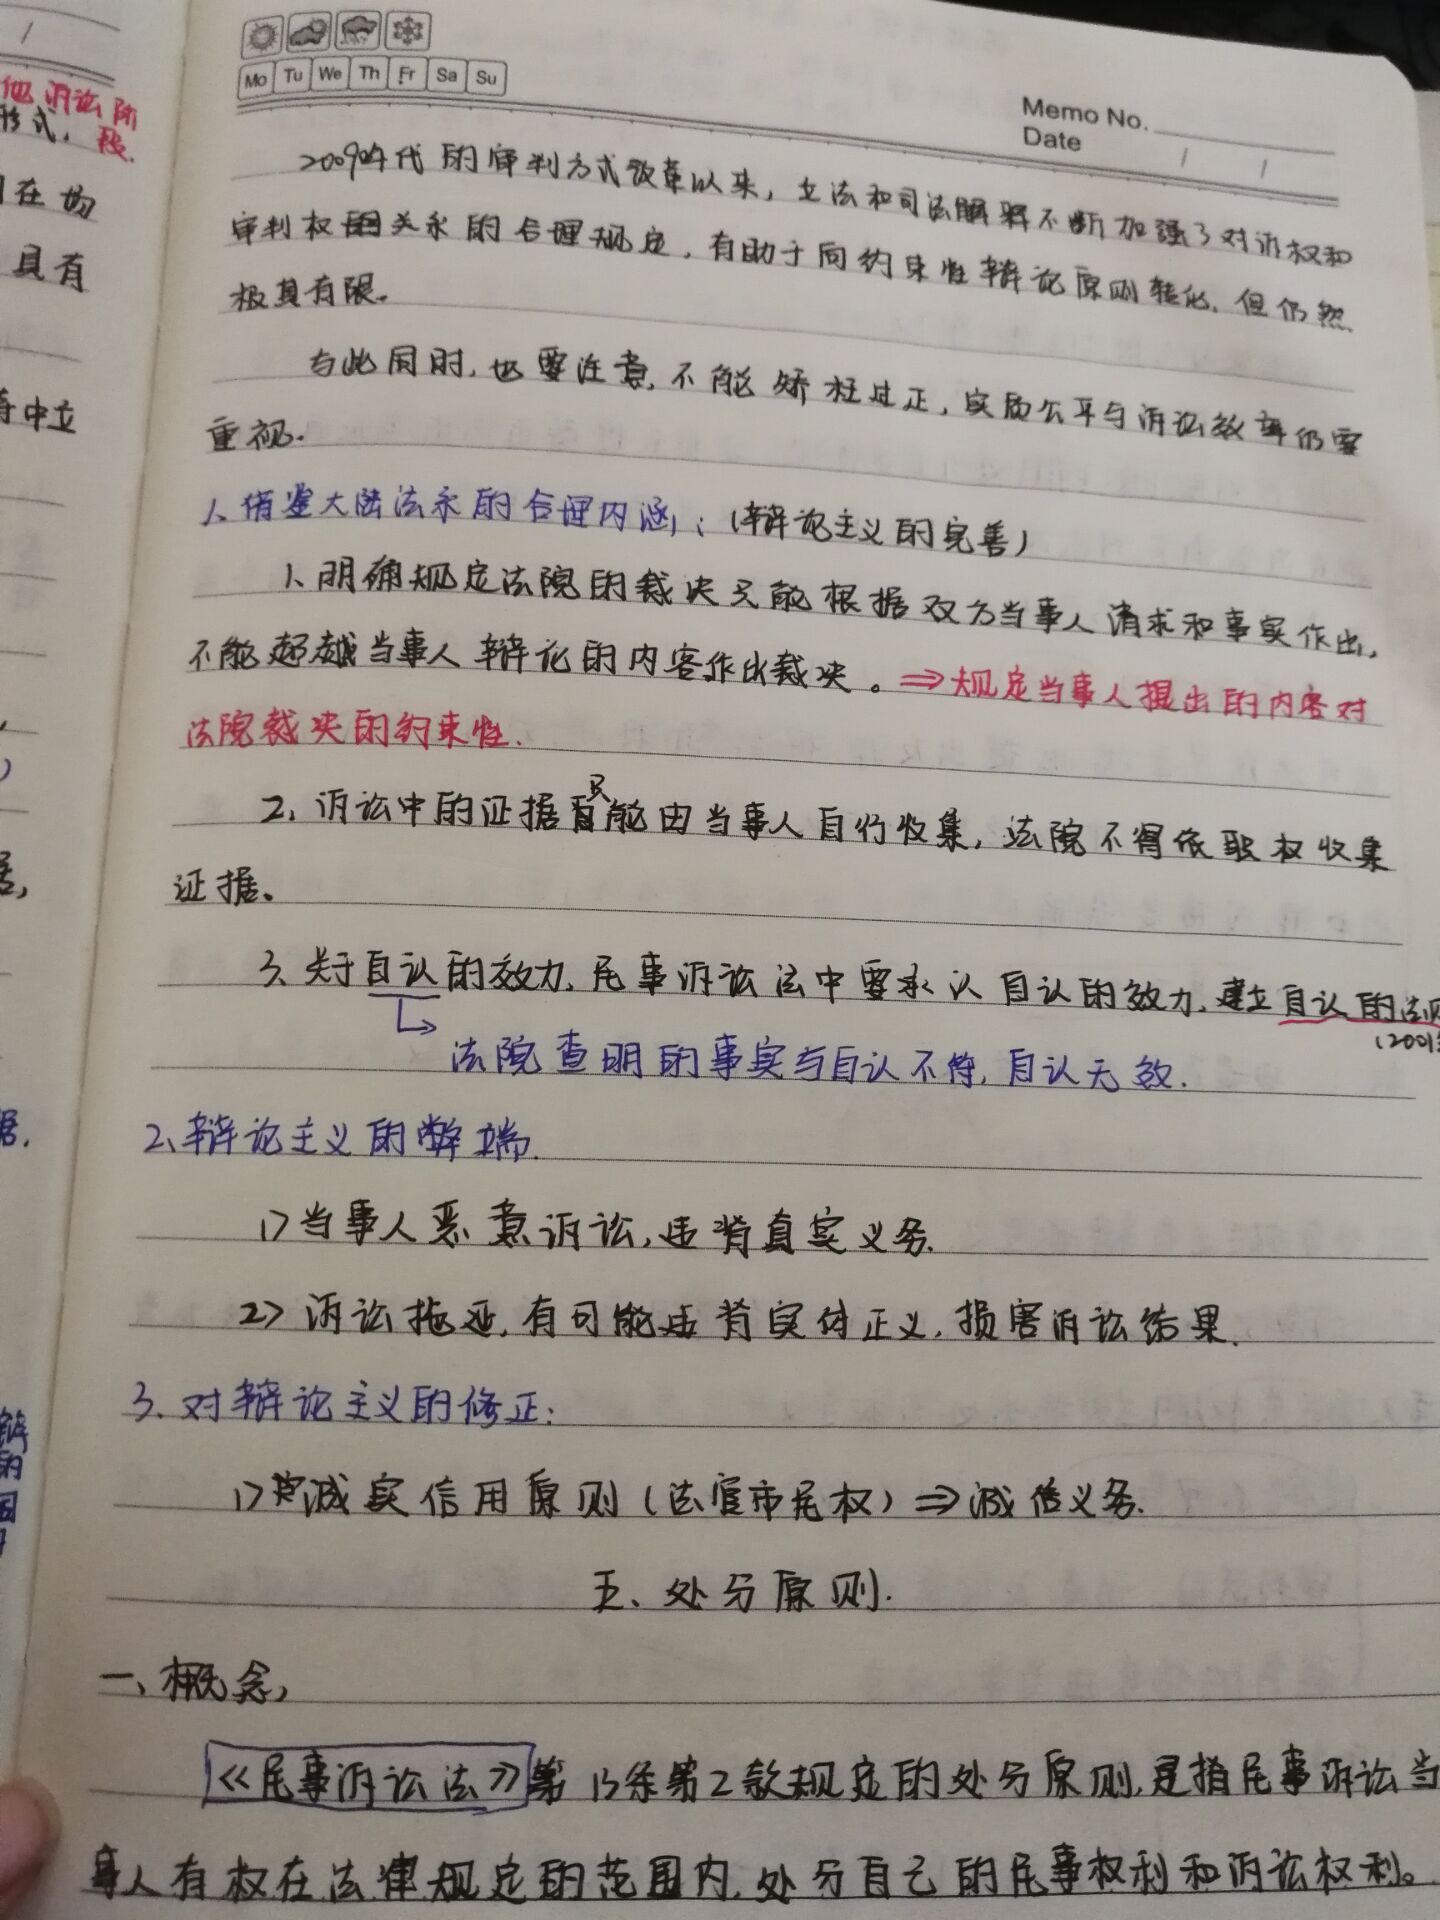 Mo Tu We Th Fr Sa Su
Memo No.
Date / /
年代的审判方式改革以来，立法和司法解释不断加强了对诉权和
审判权关系的合理规定，有助于向约束性辩论原则转化，但仍然
极其有限。
与此同时，也要注意，不能矫枉过正，实质公平与诉讼效率仍要
重视．
1、借鉴大陆法系的合理内涵；（辩论主义的完善）
1、明确规定法院的裁决只能根据双方当事人请求和事实作出，
不能超越当事人辩论的内容作出裁决。⇒规定当事人提出的内容对
法院裁决的约束性．
2，诉讼中的证据只能由当事人自行收集，法院不得依职权收集
证据。
3、关于自认的效力，民事诉讼法中要求认自认的效力，建立自认的法则
(2001
法院查明的事实与自认不符，自认无效．
2、辩论主义的弊端．
1>当事人恶意诉讼，违背真实义务．
2>诉讼拖延，有可能违背实体正义，损害诉讼结果．
3．对辩论主义的修正：
1>诚实信用原则（法官市民权）⇒诚信义务．
五、处分原则．
一、概念，
《民事诉讼法》第13条第2款规定的处分原则，是指民事诉讼当
事人有权在法律规定的范围内，处分自己的民事权利和诉讼权利。
/
他诉讼阶
形式，段．
在
具有
中立
据，
据．
辩
的